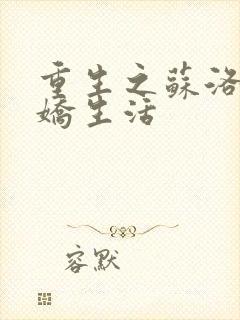 重生之蘇洛
嬌生活
容默